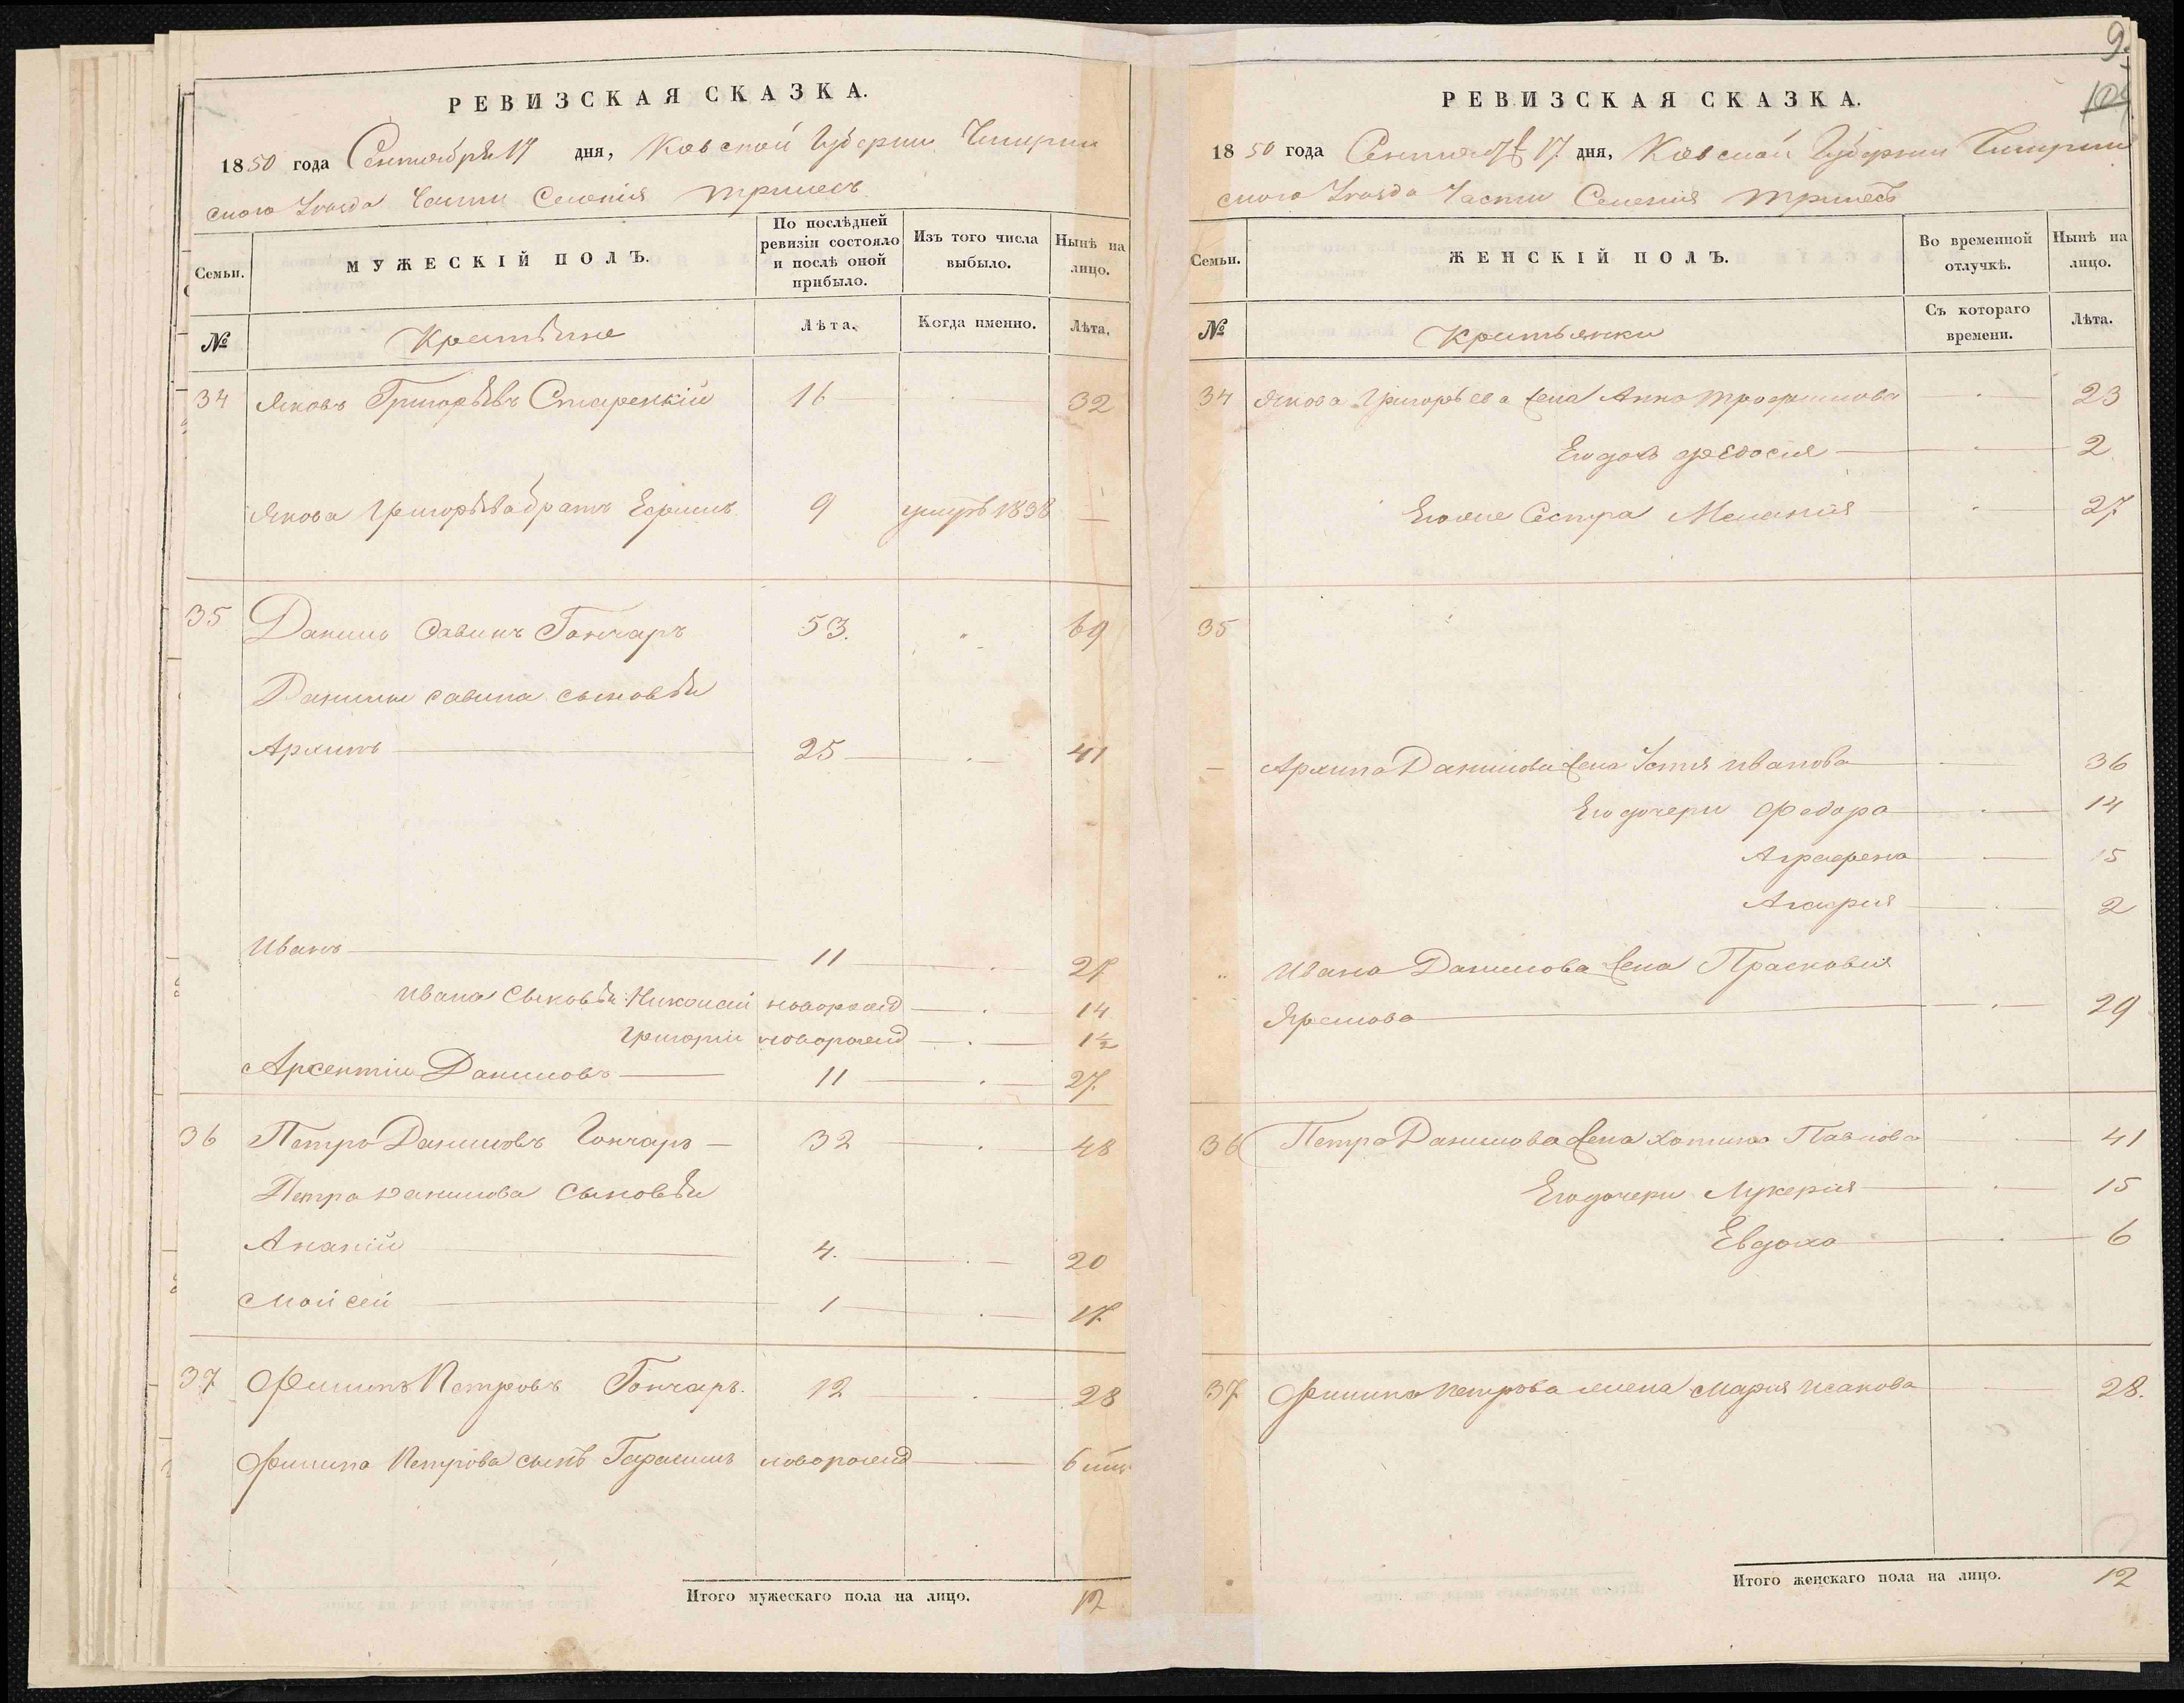 9.
104
РЕВИЗСКАЯ СКАЗКА.
1850 года Сентября 17 дня, Киевской Губернии Чигирин
ского Уезда Части Селения Трилесъ
Семьи.
МУЖЕСКІЙ ПОЛЪ.
По послѣдней ревизіи состояло и послѣ оной прибыло.
Изъ того числа выбыло.
Нынѣ на лицо.
№
Крестьяне
Лѣта.
Когда именно.
Лѣта.
34 Яковъ Григорьевъ Старенкій 16 32
Якова Григорьева братъ Ефимъ 9 умеръ 1838 —
35 Данило Савинъ Гончаръ 53. 69
Данилы Савина сыновьи
Архипъ 25 41
Иванъ 11 27
Ивана Сыновьи Николай новорожд 14
Григорій новорожд 1½
Арсентій Даниловъ 11 27.
36 Петро Даниловъ Гончаръ 32 48
Петра Данилова Сыновьи
Ананій 4. 20
Мойсей 1 17.
37 Филипъ Петровъ Гончаръ. 12 28
Филипа Петрова сынъ Гарасимъ новорожд 6
Итого мужескаго пола на лицо. 12
РЕВИЗСКАЯ СКАЗКА.
1850 года 17 дня, Киевской Губернии Чигирин
ского Уезда Части Селения Трилесъ
Семьи.
ЖЕНСКІЙ ПОЛЪ.
Во временной отлучкѣ.
Нынѣ на лицо.
№
Крестьянки
Съ котораго времени.
Лѣта.
34 Якова Григорьева жена Анна Трофимова 23
Его дочь Федосия 2
Его же Сестра Мелания 27
35
Архипа Данилова жена Устя Иванова 36
Его дочери Федора 14
Аграфена 15
Агафия 2
Ивана Данилова жена Прасковия
Яремова 29
36 Петра Данилова жена Хотина Павлова 41
Его дочери Лукерия 15
Евдоха 6
37 Филипа Петрова жена Мария Исакова 28.
Итого женскаго пола на лицо. 12